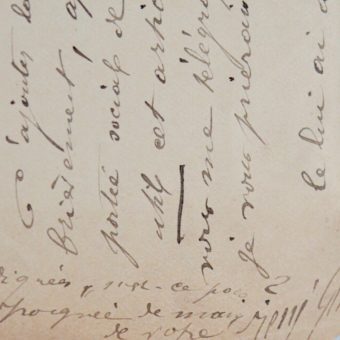 C'ajoutez le
brièvement, a
portée social de
utile cet artic
vous me télégra
je vous prierai
le lui ai d
dignées, n'est-ce pas ?
poignée de main
de votre